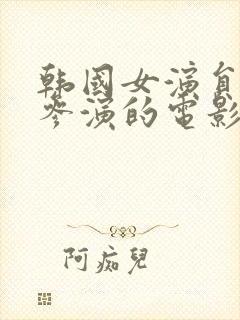 韩國女演員
參演的電影
阿痴兒